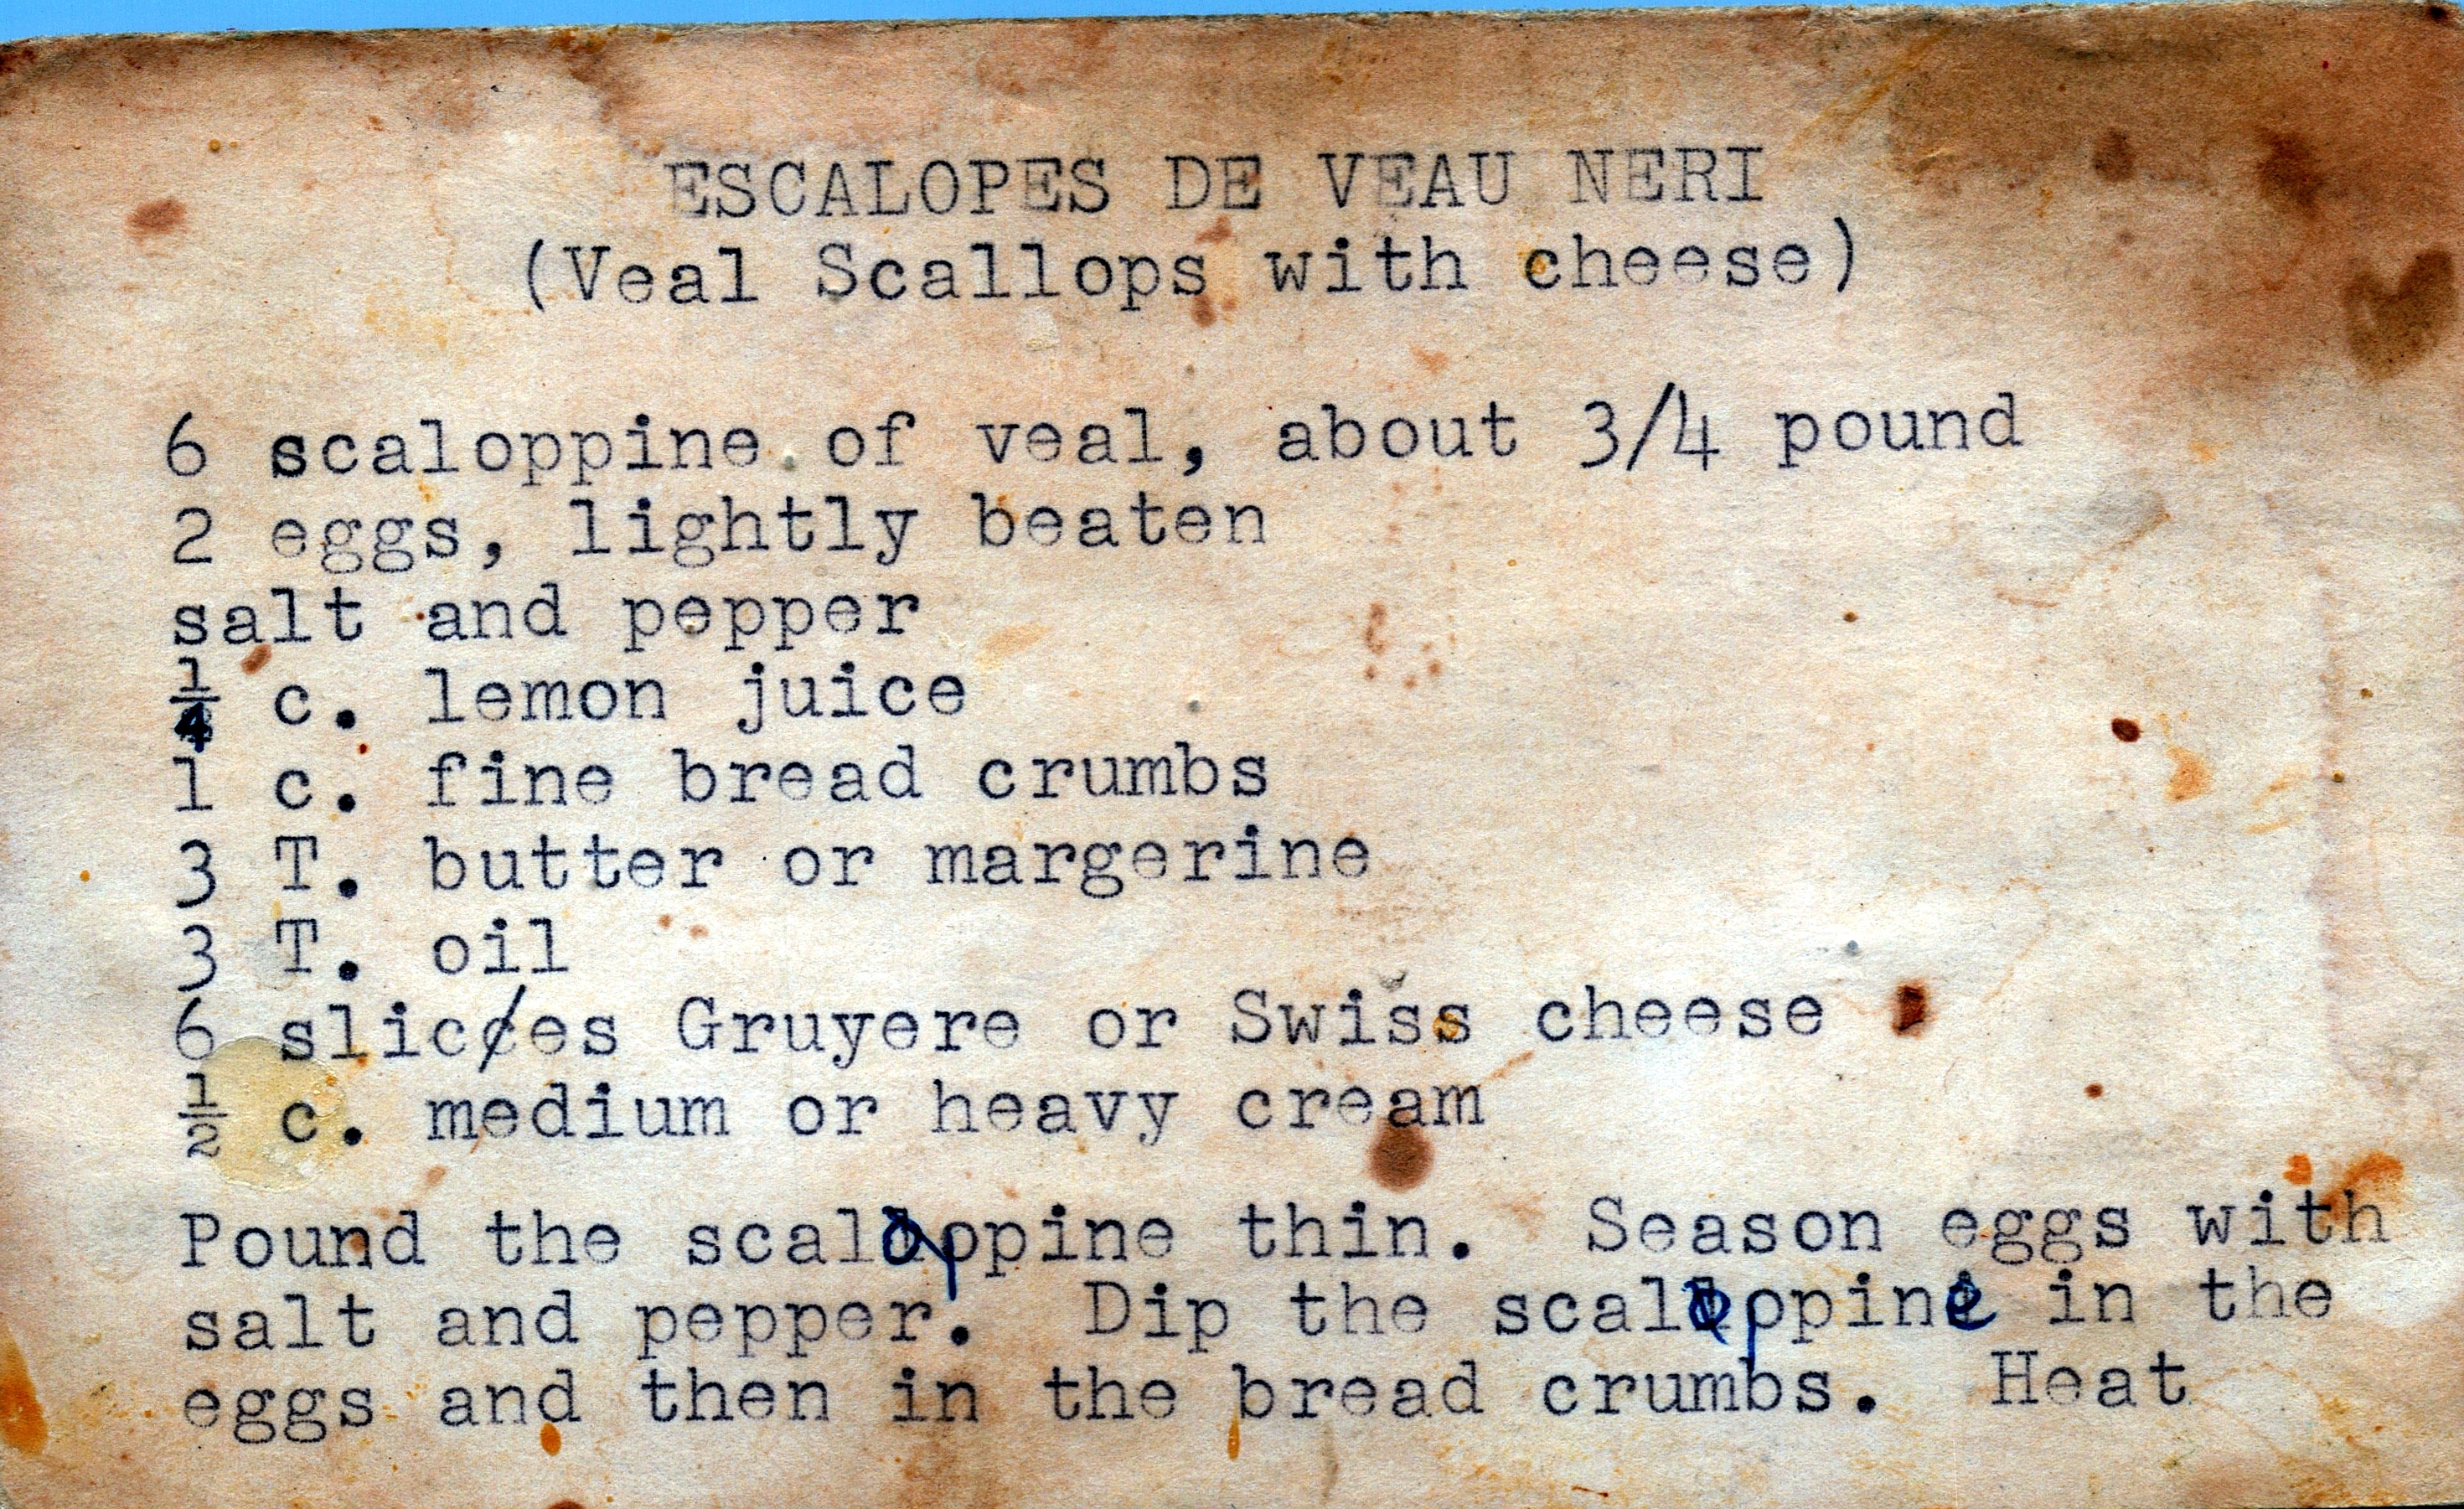 ESCALOPES DE VEAU NERI
(Veal Scallops with cheese)
6 scaloppine of veal, about 3/4 pound
2 eggs, lightly beaten
salt and pepper
1/4 c. lemon juice
1 c. fine bread crumbs
3 T. butter or margerine
3 T. oil
6 slices Gruyere or Swiss cheese
½ c. medium or heavy cream
Pound the scaloppine thin. Season eggs with
salt and pepper. Dip the scaloppine in the
eggs and then in the bread crumbs. Heat